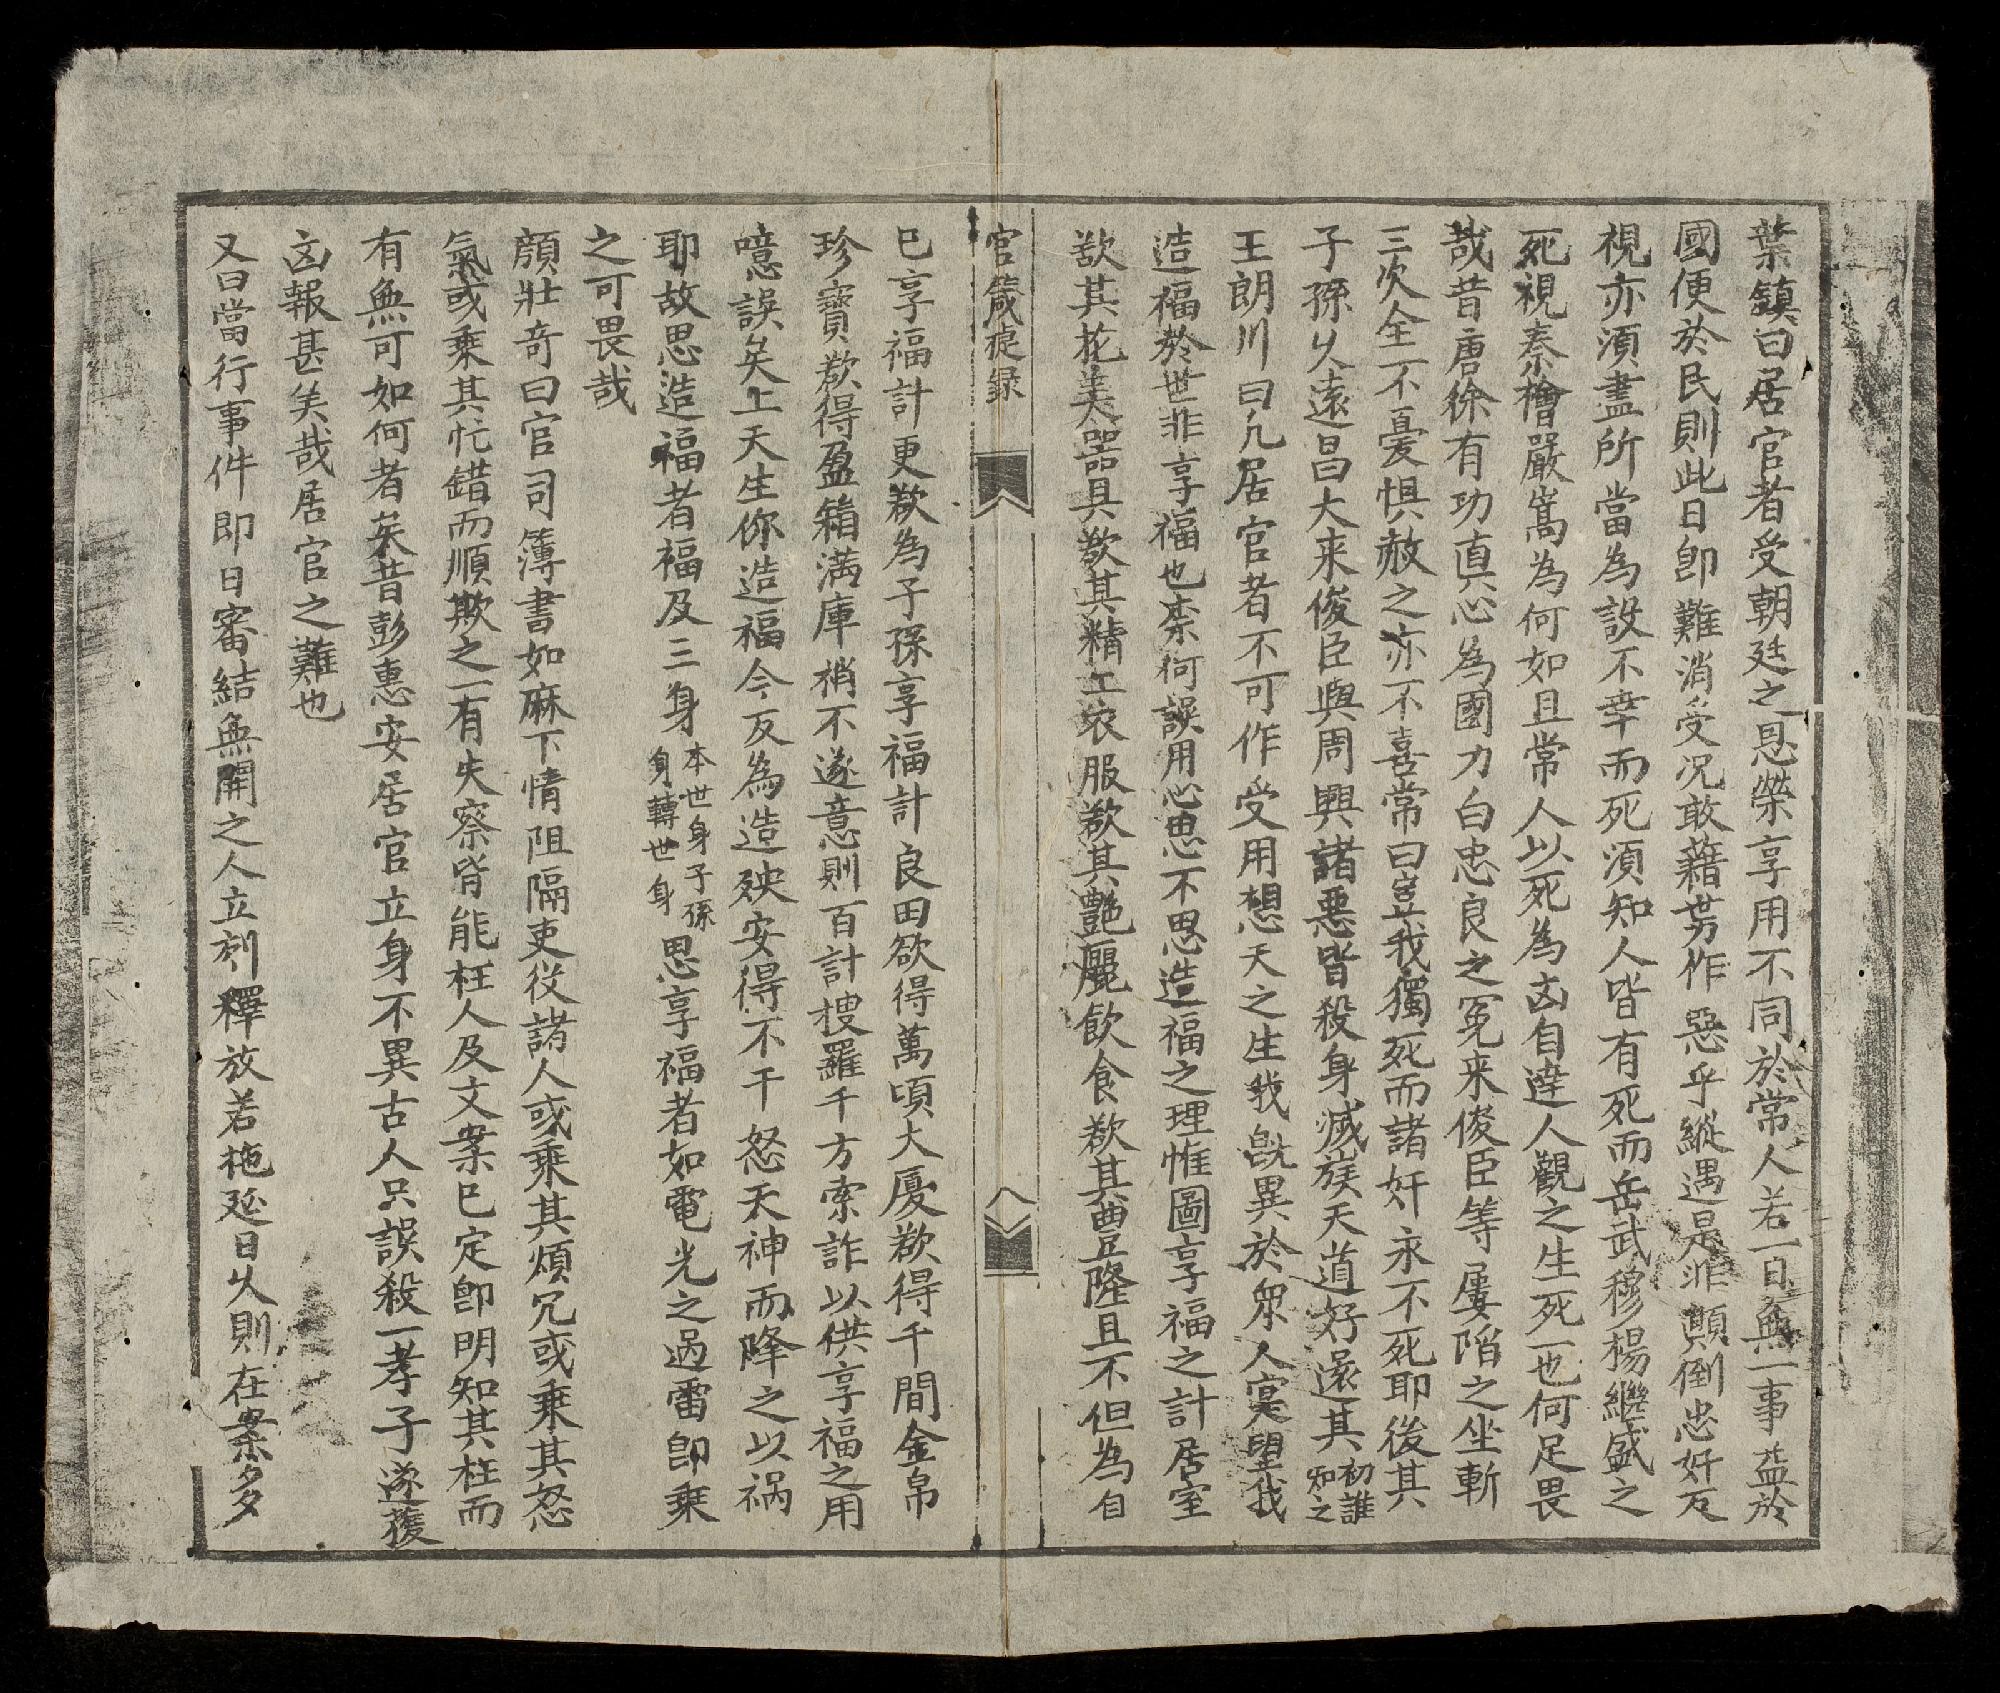 葉鎮曰居官者受朝廷之恩榮享用不同於常人若一日無一事益於
國便於民則此日卽難消受况敢藉势作惡乎縱遇是非顛倒忠奸反
視亦須盡所當為設不幸而死須知人皆有死而岳武穆楊繼盛之
死視秦檜嚴嵩為何如且常人以死為凶自達人觀之生死一也何足畏
哉昔唐徐有功真心為國力白忠良之冤来俊臣等屢陷之坐斬
三次全不憂惧赦之亦不喜常曰豈我獨死而諸奸永不死耶後其
子孫久遠昌大来俊臣與周興諸惡皆殺身滅族天道好還其初誰知之
王朗川曰凢居官者不可作受用想天之生我旣異於衆人寔望我
造福於世非享福也柰何誤用心思不思造福之理惟圖享福之計居室
欲其花美器具欲其精工衣服欲其艷麗飲食欲其豊隆且不但為自
官箴捷録
已享福計更欲為子孫享福計良田欲得萬頃大厦欲得千間金帛
珍寶欲得盈箱満庫稍不遂意則百計搜羅千方索詐以供享福之用
噫誤矣上天生你造福今反為造殃安得不干怒天神而降之以禍
耶故思造福者福及三身本世身子孫身轉世身思享福者如電光之過雷卽乗
之可畏哉
顔壯奇曰官司簿書如麻下情阻隔吏役諸人或乗其煩冗或乗其怒
氣或乗其忙錯而順欺之一有失察皆能枉人及文案已定卽明知其枉而
有無可如何者矣昔彭惠安居官立身不異古人只誤殺一孝子遂獲
凶報甚矣哉居官之難也
又曰當行事件即日審結無開之人立刻釋放若拖延日久則在案多